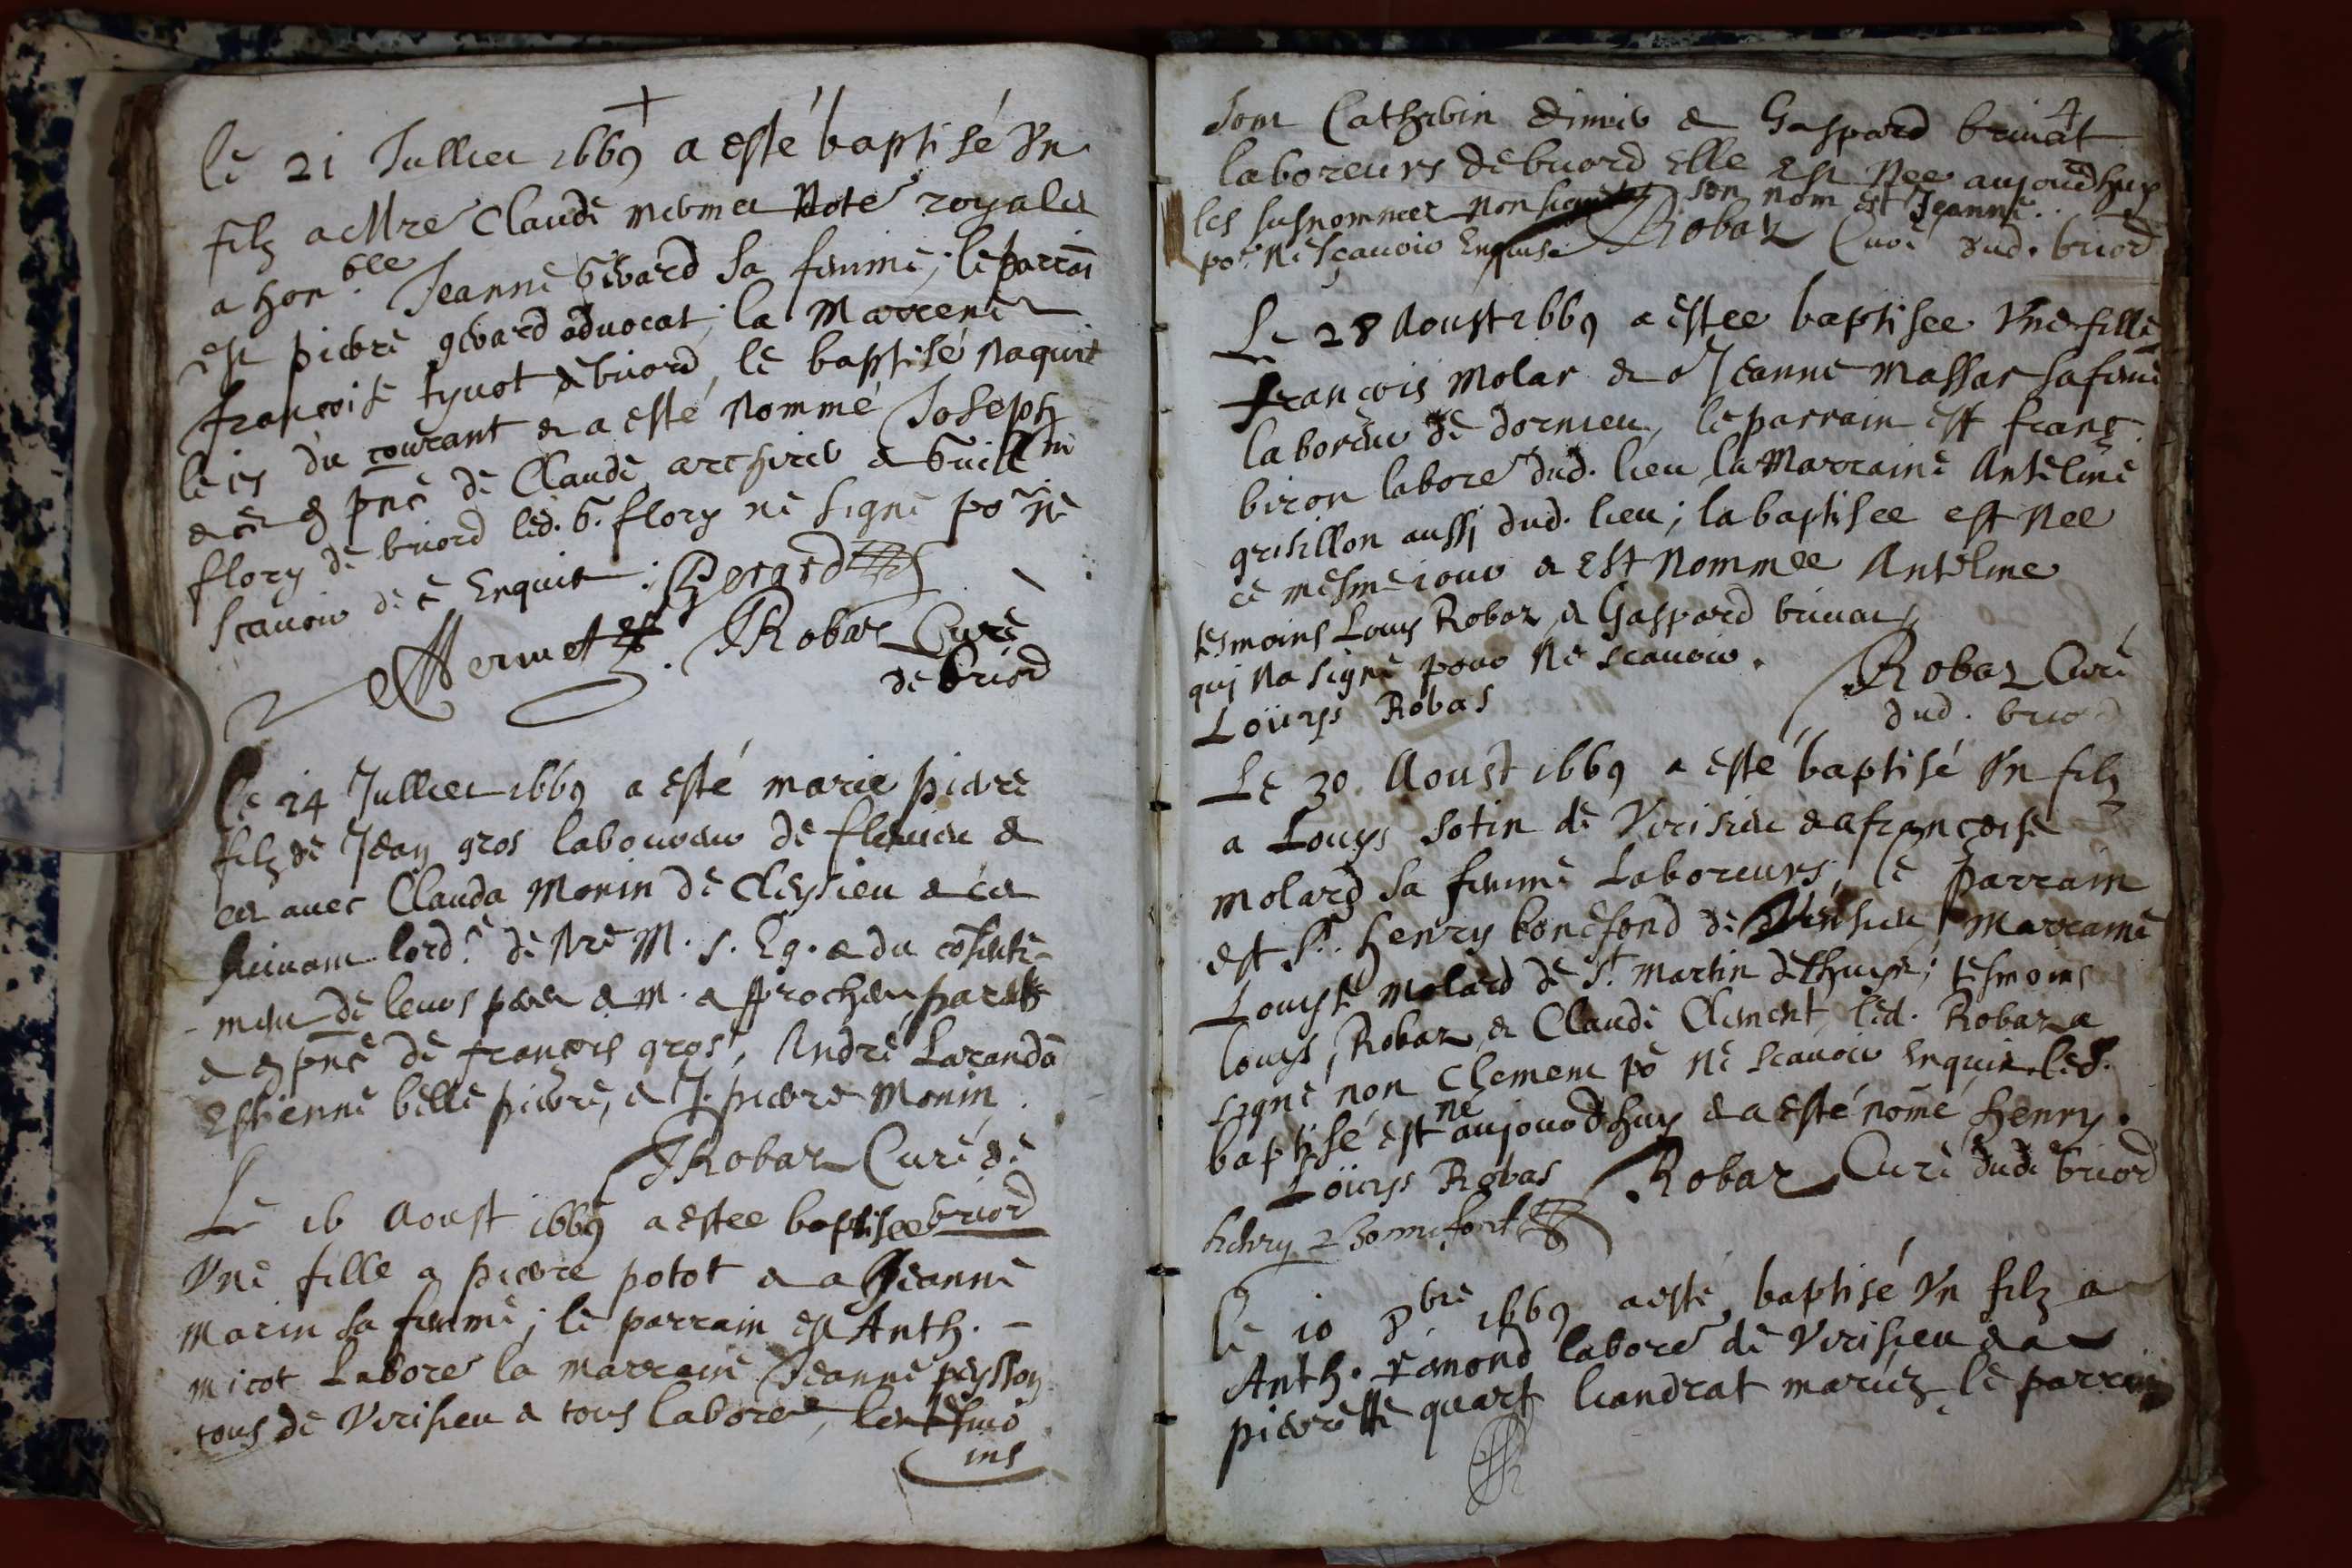 +
le 21 Julliet 1669 a esté baptisé Vn
filz a Mre Claude mermet Note royal et
a hon.ble Jeanne Gerard sa femme; le parrai
est pierre gerard advocat; la Marrene
françoise tynot de briord, le baptisé naquit
le 19 du courant et a esté Nommé Joseph
en pnce de Claude archirel et Guill
flory de briord led. G. flory ne signé po ne
scavoir de ce Enquis : Gerard
Mermet . Robaz Curé
de briord
Le 24 Julliet 1669 a esté marié pierre
filz de Jean gros laboureur de flevieu et
ce avec Clauda Monin de Cleysieu et ce
suivant lord.e de Nre M. S. Eg. et du cosente-
- ment de leurs pere et M. et prochen parets
et en pnce de françois gros, André Larenda
Estienne belle pierre, et J. pierre Monin
Robaz Curé de
briord
Le 16 Aoust 1669 a estee baptisee
Vne fille a pierre potot et a Jeanne
Marin sa femme; le parrain est Anth. -
micot Labore la marraine Jeanne peysson
tous de Virisieu et tous labore, les tesmo
ins
4
sont Catherin et Gaspard brivat
laboreurs de briord Elle Est Nee aujourdhuy
les susnommez non signé son nom est Jeanne.
po.r Ne sçavoir Enquis Robaz Curé dud. briord
Le 28 Aoust 1669 a estee baptisee Vne fille
françois Molar et a Jeanne Massar sa feme
laboreur de dornieu, le parrain est franç.
biron labore dud. lieu la Marraine Antelme
grisillon aussi dud. lieu; la baptisee est Nee
ce mesme iour et Est Nommee Antelme
tesmoins Louys Robaz et Gaspard brivat
qui Na signé pour Ne scavoir.
Robaz Curé
dud. briord
Loüys Robas
Le 30 Aoust 1669 a esté baptisé Vn filz
a Louys Sotin de Virisieu et a françoise
Molard sa femme Laboreurs, le parrain
est Sr. Henry bonefond de Virisieu, Marraine
Louyse Molard de St. Martin; tesmoins
louys Robaz et Claude Clement, led. Robaz a
signé non Clement po Ne scavoir enquis. led.
baptisé est né aujourdhuy et a esté nomé henry.
Loüys Robas Robaz Curé dud. briord
henry Bonnefont
Le 10 8bre 1669 a esté baptisé Vn filz a
Anth. remond labore de Virisieu et a
pierrette quart liandrat mariez le parrain